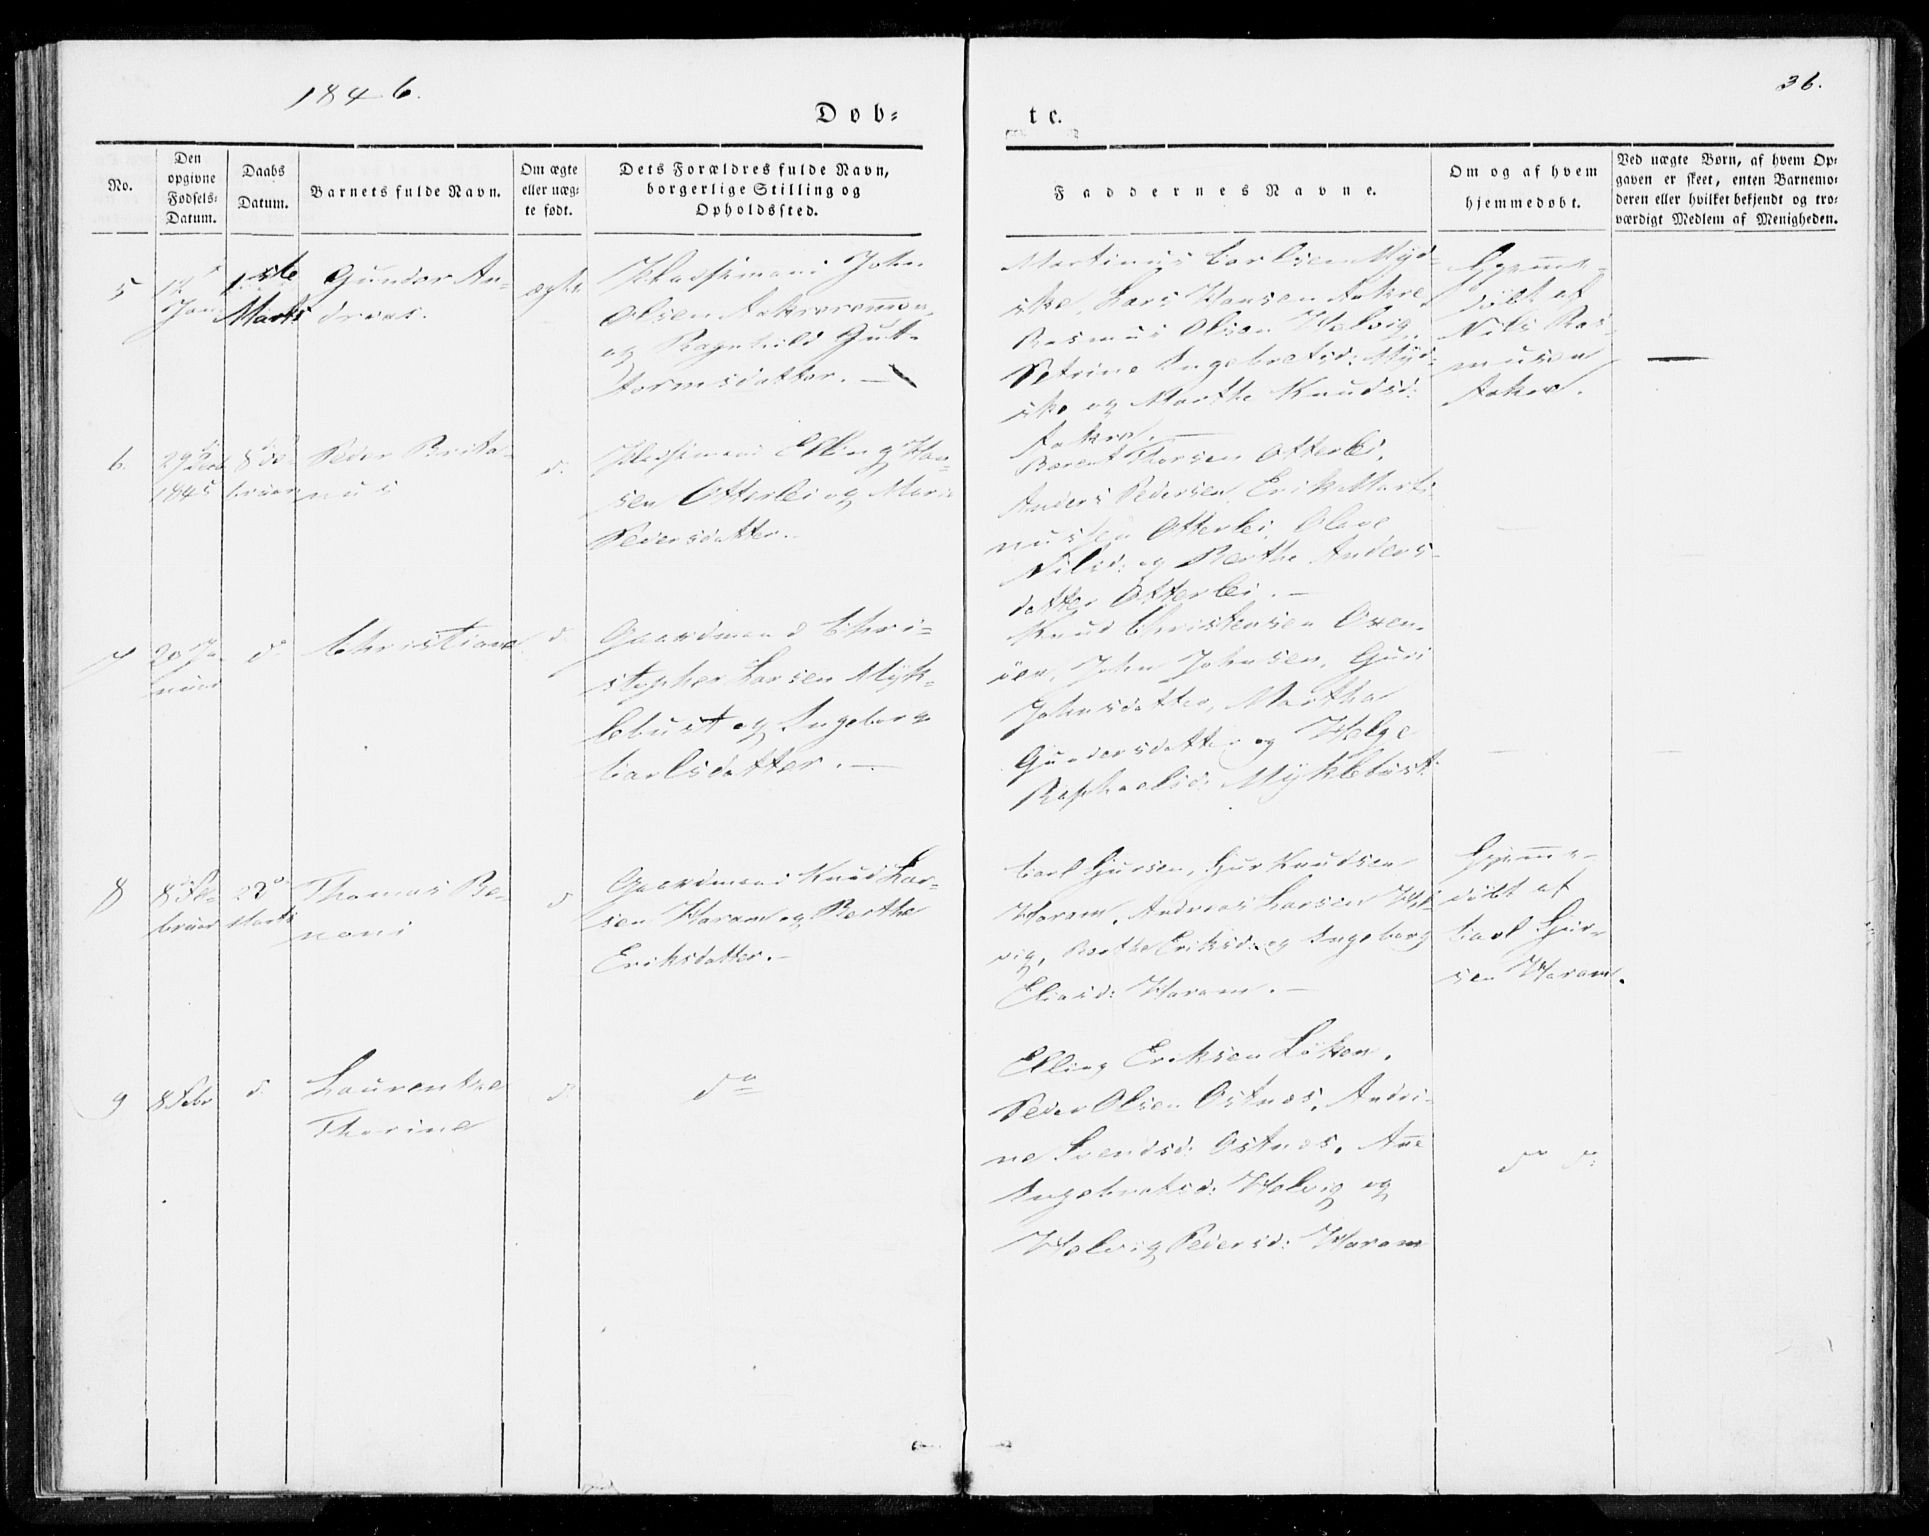 1846.
36.
Døb-
te.
No.
Den opgivne Fødsels-Datum.
Daabs Datum.
Barnets fulde Navn.
Om ægte eller uæg-te født.
Dets Forældres fulde Navn, borgerlige Stilling og Opholdssted.
Faddernes Navne.
Om og af hvem hjemmedøbt.
Ved uægte Børn, af hvem Op-gaven er skeet, enten Barnemo-deren eller hvilket bekjendt og tro-værdigt Medlem af Menigheden.
5
Jan
1ste
Marts
Gunder An-
dreas.
ægte
John
Olsen
og Ragnhild Gut-
tormsdatter. —
Martinus Carlsen Myd-
ske, Lars Hansen Aakre
Rasmus Olsen Helvig,
Petrine Ingebretsd: Myd-
ske og Marthe Knudsd:
Aakre. —
Hjemme-
døbt af
Nils Ras-
musen
Aakre.
—
6.
29
1845
8 Fe-
bruar
Peder Brita-
nus
d.
Elling Han-
sen Otterlei og Mari
Pedersdatter.
Barent Thorsen Otterlei,
Anders Pedersen, Erik Marti-
nussen Otterlei, Olave
Nilsd: og Berthe Anders-
datter Otterlei. —
—
—
7
20 Ja-
nuar
d.
Christiane
d.
Gaardmand Chri-
stopher Larsen Myk-
lebust og Ingeborg
Carlsdatter. —
Knud Christensen Oxen-
öen, John Johnsen, Guri
Johnsdatter, Martha
Gundersdatter og Helge
Raphaelsd: Myklebust.
—
—
8
8 Fe-
bruar
22
Marts
Thomas Be-
noni
d
Gaardmand Knud Lar-
sen Haram og Berthe
Eriksdatter. —
Carl Sjursen, Sjur Knudsen
Haram, Andreas Larsen Hel-
vig, Berthe Eriksd: og Ingeborg
Eliasd: Haram. —
Hjemme-
døbt af
Carl Sjur-
sen Haram.
9
8 Febr
d.
Laurentze
Thorine
d.
do
Elling Eriksen Löken,
Peder Olsen Ostnes, Andri-
ne Svendsd: Ostnes, Ane
Ingebretsd: Helvig og
Helvig Pedersd: Haram
do do